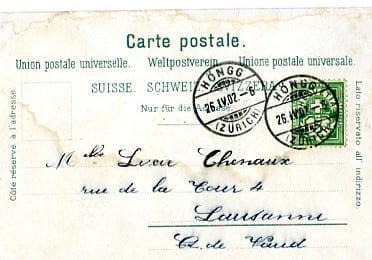 Carte postale.
Union postale universelle. Weltpostverein. Unione postale universale.
SUISSE. SCHWEIZ. SVIZZERA.
Nur für die Adresse.
Côté réservé à l'adresse.
Lato riservato all' indirizzo.
HÖNGG
26.IV.02.-6
(ZÜRICH)
HÖNGG
26.IV.02
(ZÜRICH)
Mlle Chenaux
rue de la Tour 4
Lausanne
Ct. de Vaud